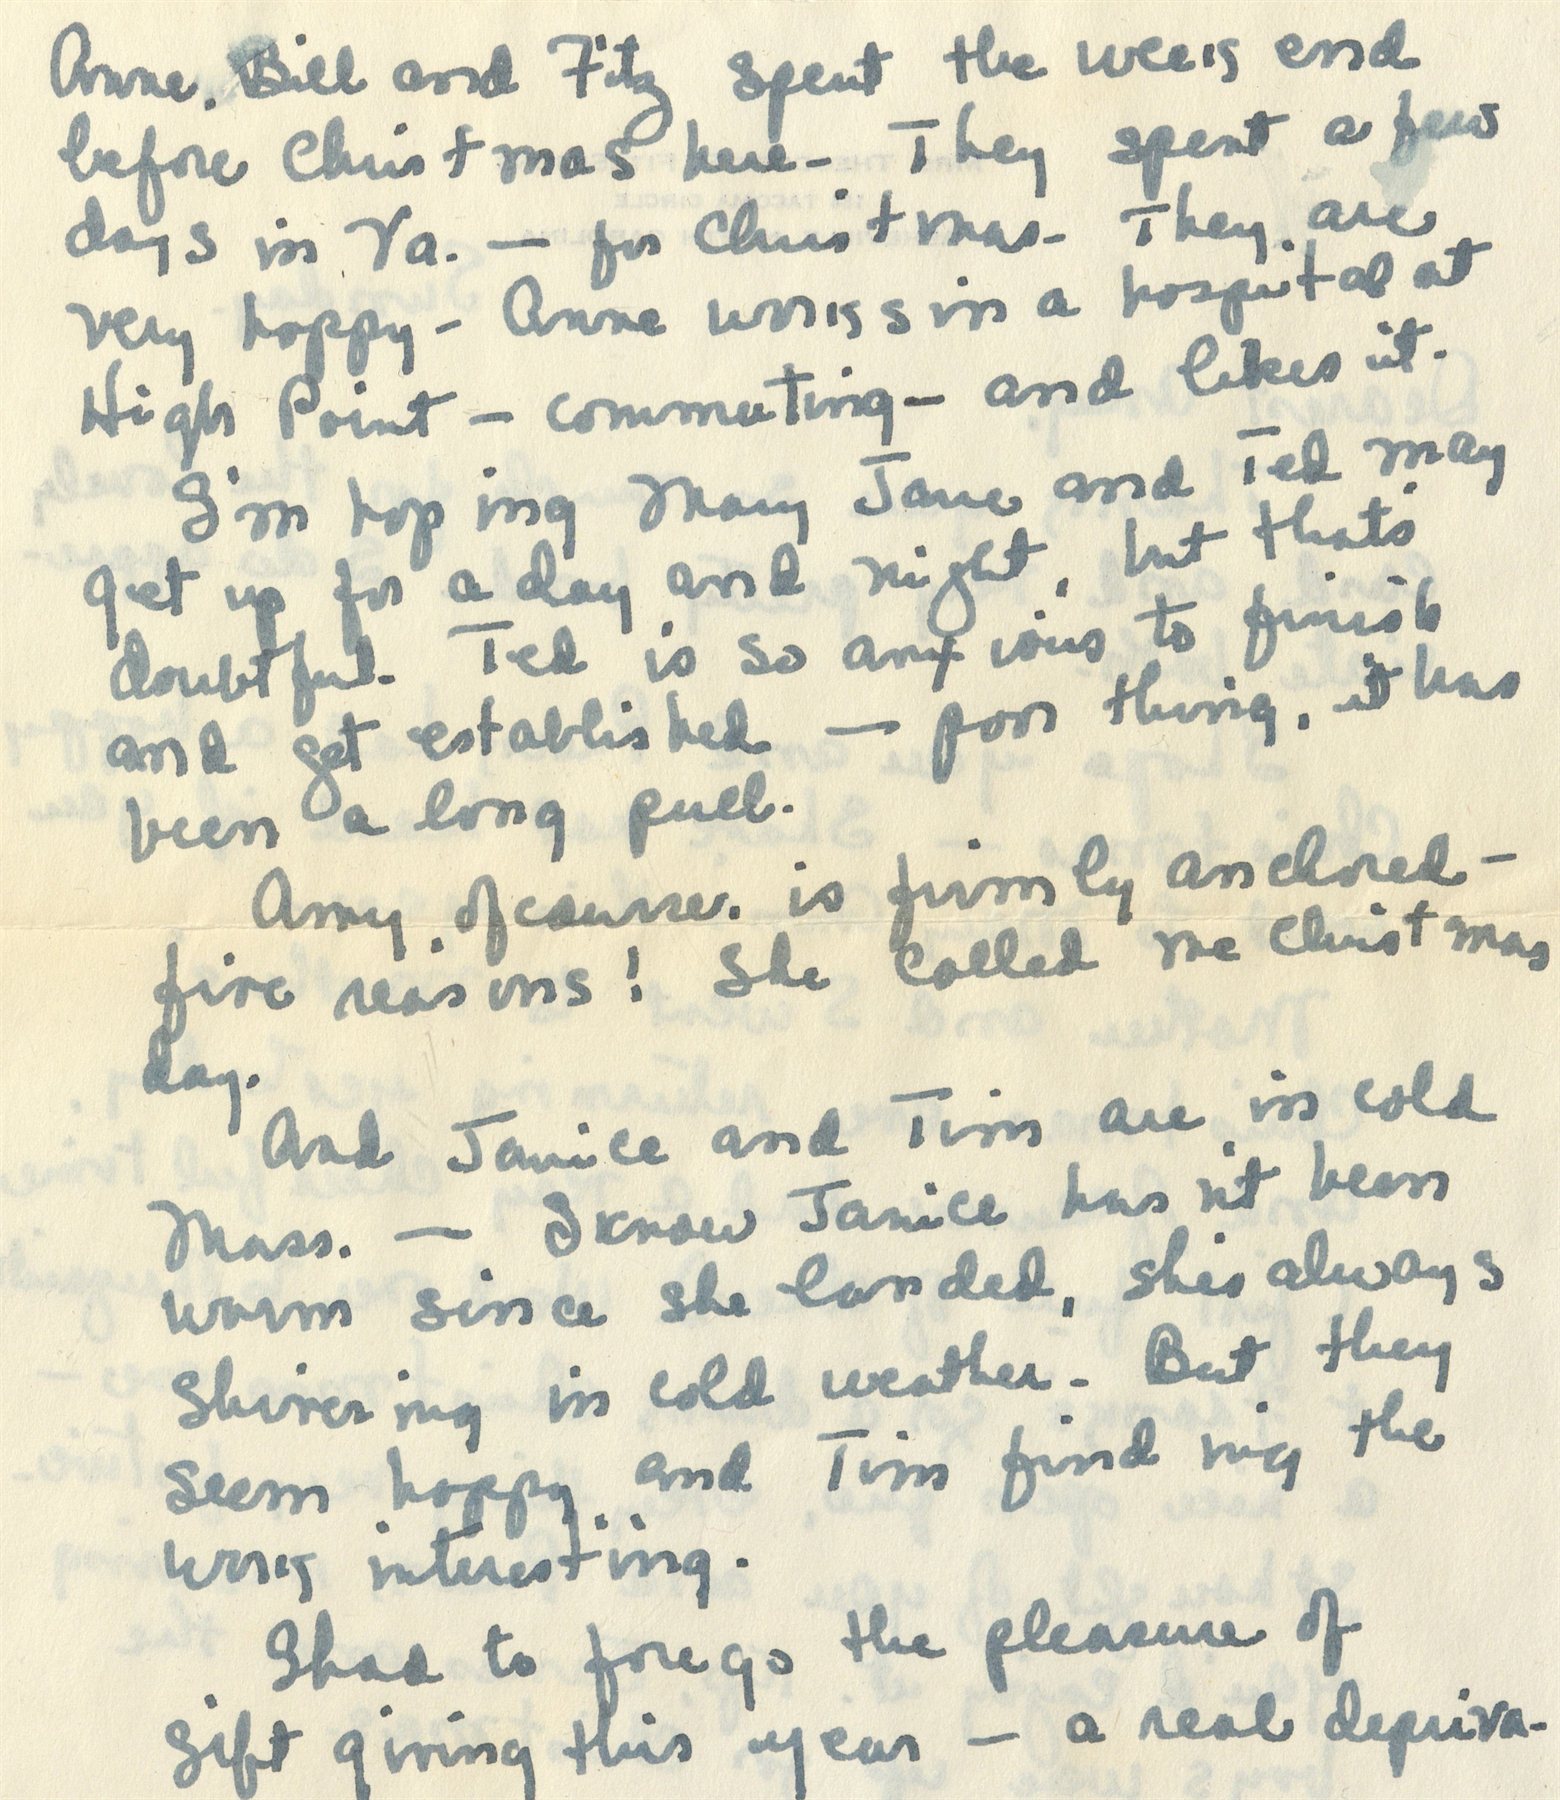 Anne, Bill and Fitz spent the week end
before Christmas here - They spent a few
days in Va. — for Christmas - They are
very happy - Anne works in a hospital at
High Point - commuting - and likes it.
I'm hoping Mary Jane and Ted may
get up for a day and night, but that's
doubtful. Ted is so anxious to finish
and get established — poor thing, it has
been a long pull.
Amy, of course, is firmly anchored -
five reasons! She called me Christmas
day.
And Janice and Tim are in cold
Mass. — I know Janice hasn't been
warm since she landed, she's always
shivering in cold weather - But they
seem happy and Tim finding the
work interesting.
I had to forego the pleasure of
gift giving this year - a real depriva-